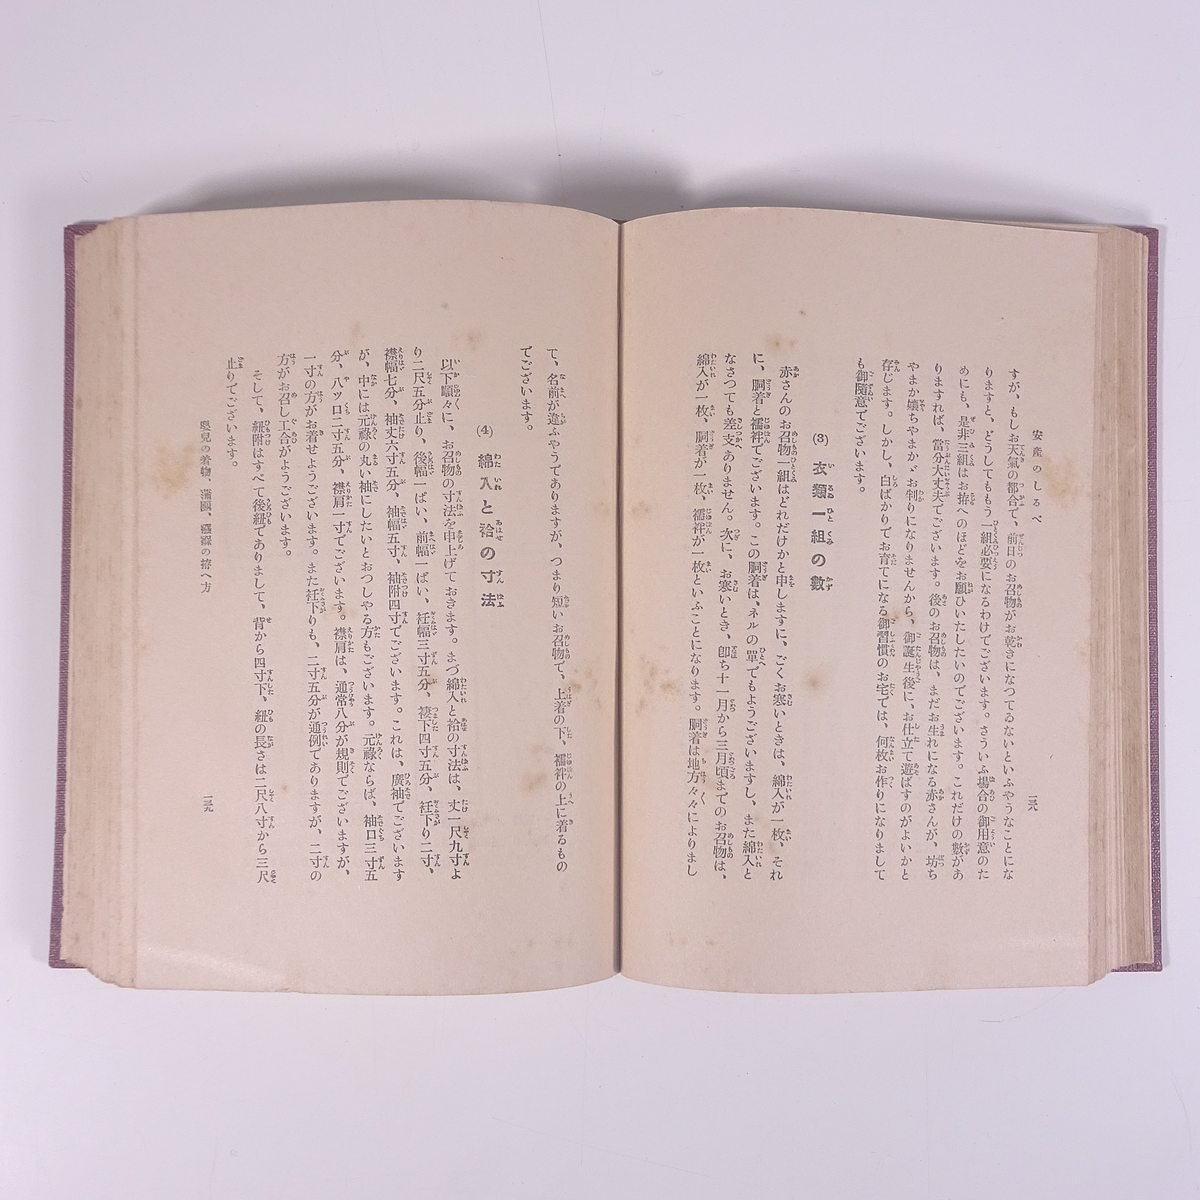 安產のしるべ
一三八
すが、もしお天氣の都合で、前日のお召物がお乾きになつてゐないといふやうなことにな
りますと、どうしてももう一組必要になるわけでございます。さういふ場合の御用意のた
めにも、是非三組はお拵へのほどをお願ひいたしたいのでございます。これだけの數があ
りますれば、當分大丈夫でございます。後のお召物は、まだお生れになる赤さんが、坊ち
やまか孃ちやまかゞお判りになりませんから、御誕生後に、お仕立て遊ばすのがよいかと
存じます。しかし、白ばかりでお育てになる御習慣のお宅では、何枚お作りになりまして
も御隨意でございます。
(3) 衣類一組の數
赤さんのお召物一組はどれだけかと申しますに、ごくお寒いときは、綿入が一枚、それ
に、胴着と襦袢でございます。この胴着は、ネルの單でもようございますし、また綿入と
なさつても差支ありません。次に、お寒いとき、卽ち十一月から三月頃までのお召物は、
綿入が一枚、胴着が一枚、襦袢が一枚といふことになります。胴着は地方々々によりまし
て、名前が違ふやうでありますが、つまり短いお召物で、上着の下、襦袢の上に着るもの
でございます。
(4) 綿入と袷の寸法
以下順々に、お召物の寸法を申上げておきます。まづ綿入と袷の寸法は、丈一尺九寸よ
り二尺五分止り、後幅一ぱい、前幅一ぱい、衽幅三寸五分、褄下四寸五分、衽下り二寸、
襟幅七分、袖丈六寸五分、袖幅五寸、袖附四寸でございます。これは、廣袖でございます
が、中には元祿の丸い袖にしたいとおつしやる方もございます。元祿ならば、袖口三寸五
分、八ツ口二寸五分、襟肩一寸でございます。襟肩は、通常八分が規則でございますが、
一寸の方がお着せようございます。また衽下りも、二寸五分が通例でありますが、二寸の
方がお召し工合がようございます。
そして、紐附はすべて後紐でありまして、背から四寸下、紐の長さは二尺八寸から三尺
止りでございます。
嬰兒の着物、蒲團、襁褓の拵へ方
一三九